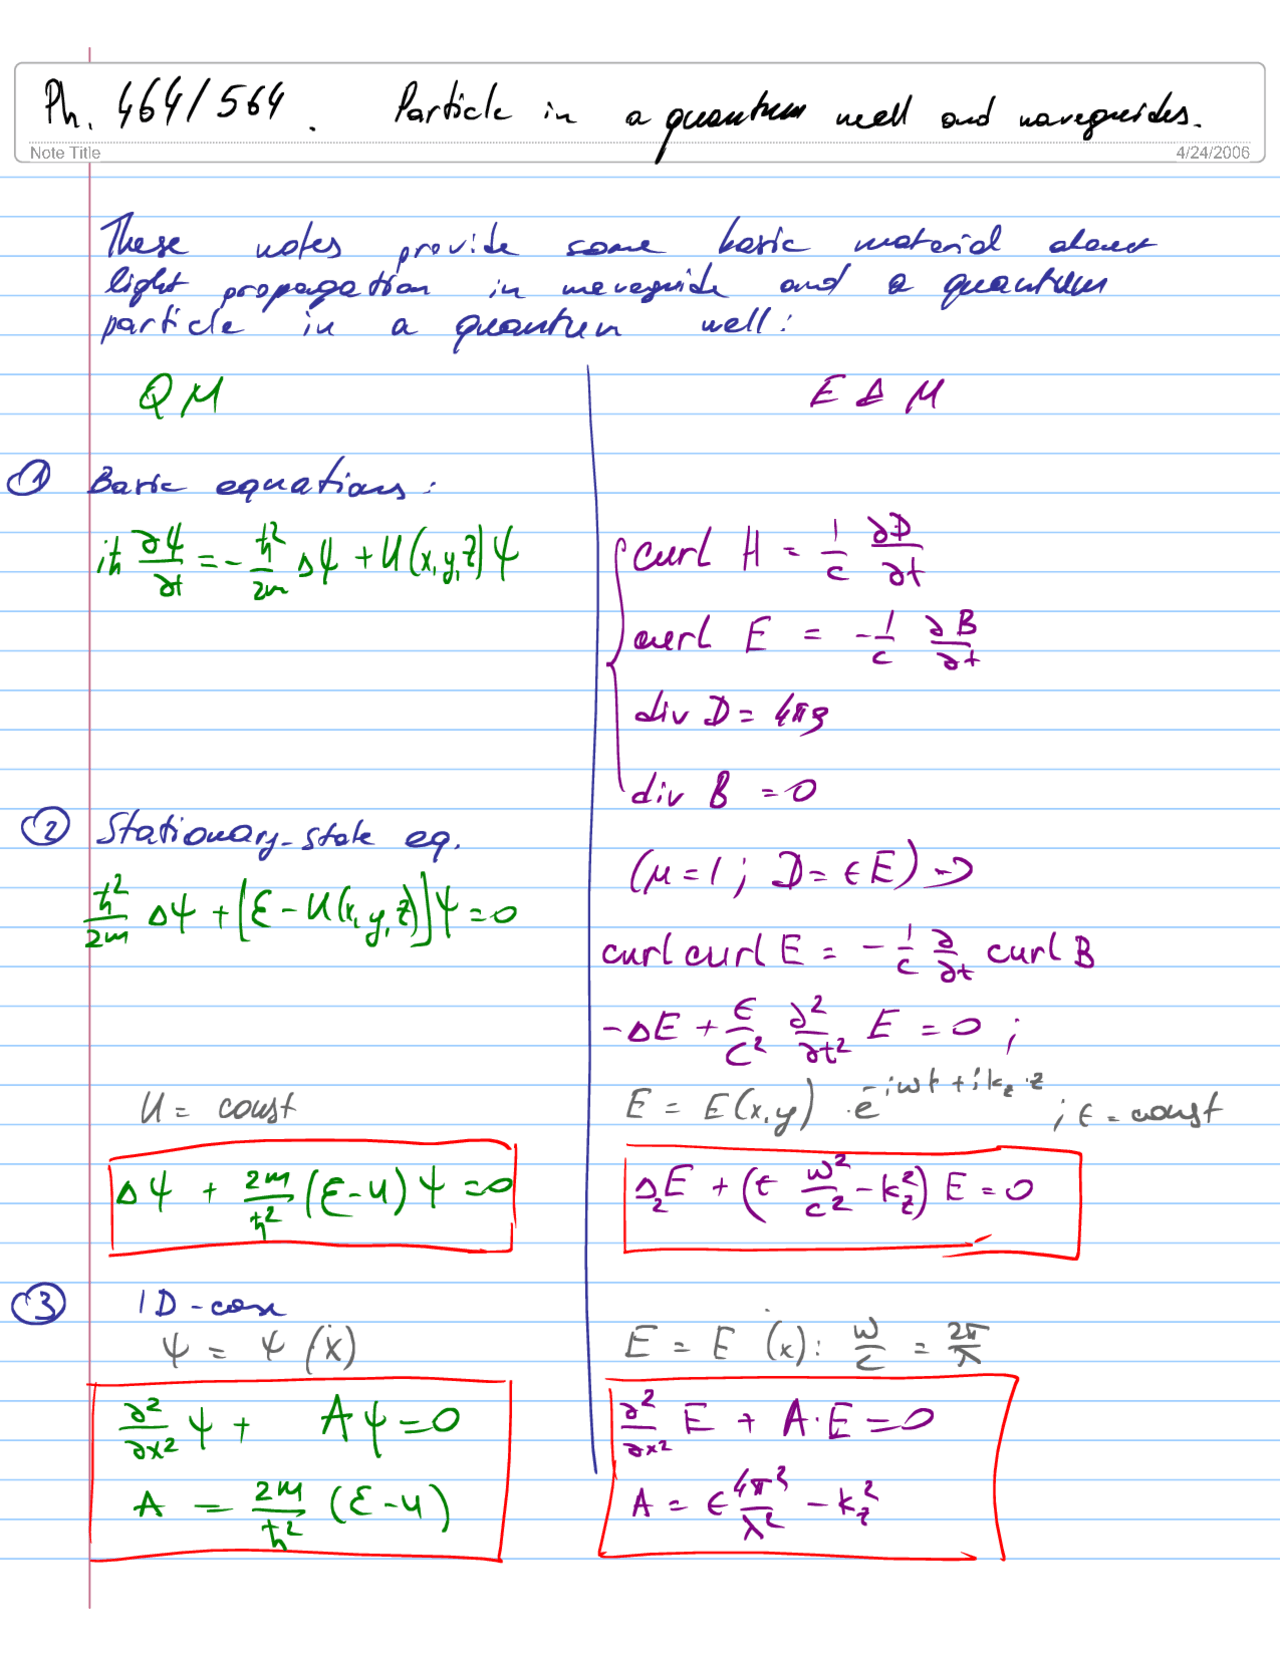 Ph. 464/564. Particle in a quantum well and waveguides.
Note Title
4/24/2006
These notes provide some basic material about
light propagation in waveguide and a quantum
particle in a quantum well:
QM
E & M
① Basic equations:
iħ ∂Ψ/∂t = - ħ²/2m ΔΨ + U(x,y,z)Ψ
curl H = 1/c ∂D/∂t
curl E = - 1/c ∂B/∂t
div D = 4πρ
div B = 0
② Stationary-state eq.
ħ²/2m ΔΨ + [Ɛ - U(x,y,z)]Ψ = 0
(μ = 1; D = ϵE) ⇒
curl curl E = - 1/c ∂/∂t curl B
-ΔE + ϵ/c² ∂²/∂t² E = 0;
U = const
E = E(x,y) · e^{-iωt + ik_z·z}; ϵ = const
ΔΨ + 2m/ħ² (Ɛ - U)Ψ = 0
Δ₂E + (ϵ ω²/c² - k_z²) E = 0
③ 1D-case
Ψ = Ψ(x)
E = E(x): ω/c = 2π/λ
∂²/∂x² Ψ + AΨ = 0
A = 2m/ħ² (Ɛ - U)
∂²/∂x² E + A·E = 0
A = ϵ 4π²/λ² - k_z²